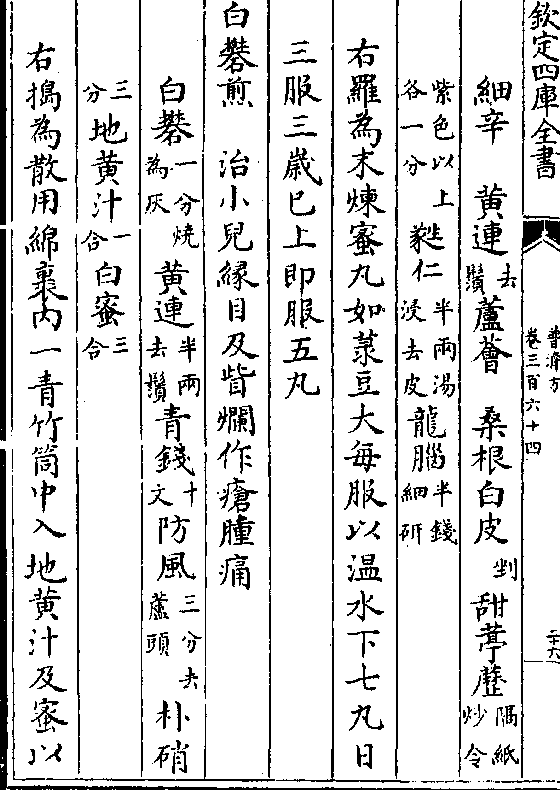 欽定四庫全書
普濟方
卷三百六十四
二十六
細辛 黃連去鬚蘆薈 桑根白皮剉甜葶藶隔紙炒令
紫色以上各一分蕤仁半兩湯浸去皮龍腦半錢細研
右羅為末煉蜜丸如菉豆大每服以温水下七丸日
三服三歲已上即服五丸
白礬煎 治小兒緣目及眥爛作瘡腫痛
白礬一分燒為灰黃連半兩去鬚青錢十文防風三分去蘆頭朴硝
三分地黃汁一合白蜜三合
右搗為散用綿裹内一青竹筒中入地黃汁及蜜以